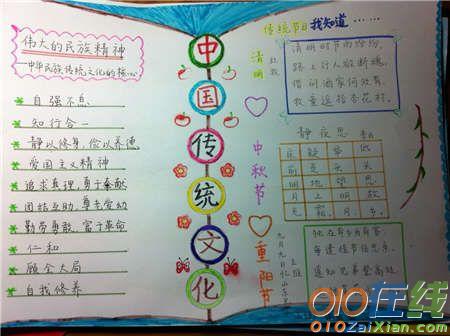 伟大的民族精神
—中华民族传统文化的核心
自强不息
知行合一
静以修身,俭以养德
爱国主义精神
追求真理,勇于奉献
团结互助,尊老爱幼
勤劳勇敢,富于革命
仁和
顾全大局
自我修养
中国传统文化
传统节日我知道……
清明
杜牧
清明时节雨纷纷,
路上行人欲断魂。
借问酒家何处有,
牧童遥指杏花村。
中秋节
静夜思
床疑举低
前是头头
明地望思
月上明故
光霜月乡
重阳节
九月九日忆山东
王维
独在异乡为异客,
每逢佳节倍思亲。
遥知兄弟登高处,
010在线
010ZaiXian.com